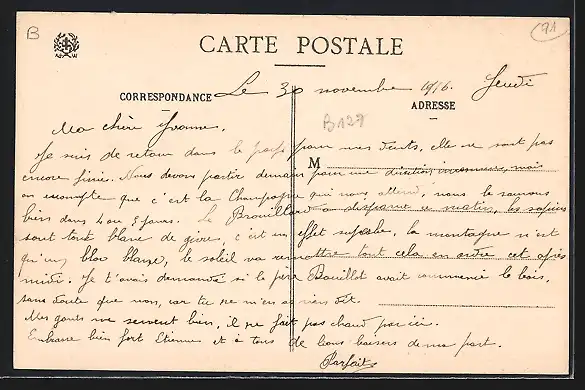 B
91
CARTE POSTALE
CORRESPONDANCE
ADRESSE
Le 30 novembre 1916. Jeudi
B127
M
Ma chère Yvonne,
Je suis de retour dans le pays pour mes dents, elle ne sont pas
encore finies. Nous devons partir demain pour une direction inconnue, mais
on escompte que c'est la Champagne qui nous attend, nous le saurons
bien dans 4 ou 5 jours. Le Brouillard a disparut ce matin, les sapins
sont tout blanc de givre, c'est un effet superbe, la montagne n'est
qu'un bloc blanc, le soleil va remettre tout cela en ordre cet après
midi. Je t'avais demandé si le père Bouillot avait commencé le bois,
sans doute que non, car tu ne m'en a rien dit.
Mes gants me servent bien, il ne fait pas chaud par ici.
Embrasse bien fort Etienne et à tous de bons baisers de ma part.
Parfait